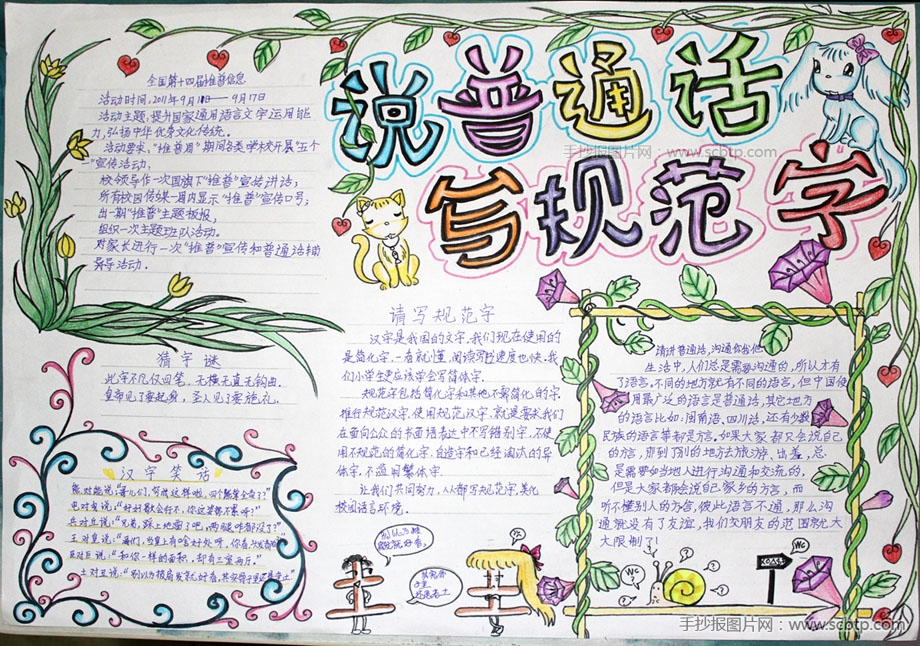 说普通话
写规范字
手抄报图片网：www.scbtp.com
全国第十四届推普信息
活动时间，2011年9月11日——9月17
活动主题：提升国家通用语言文字运用能
力，弘扬中华优秀文化传统。
活动要求，“推普周”期间各类学校开展“五个一
”宣传活动，
校领导作一次国旗下“推普”宣传讲话；
所有校园传媒一周内显示“推普”宣传口号；
出一期“推普”主题板报，
组织一次主题班队活动。
对家长进行一次“推普”宣传和普通话辅
导活动．
猜字谜
此字不凡仅四笔．无横无直无钩曲．
皇帝见了要起身．圣人见了要施礼．
汉字笑话
熊对能说：“哥儿们，穷成这样啦，四个熊掌全卖了？”
兵对丘说：“兄弟，踩上地雷了吧，两腿咋都没了？”
王对皇说：“哥们，当皇上有啥好处呀，你看，头发都白了
臣对巨说：“和你一样的面积，却有三室两厅．”
土对丑说：“别以为披肩发就好看，其实骨子里还是老土”
请写规范字
汉字是我国的文字，我们现在使用的
是简化字，一看就懂，阅读写的速度也快，我
们小学生更应该学会写简体字．
规范字包括简化字和其他不需简化的字，
推行规范汉字，使用规范汉字，就是要求我们
在面向公众的书面语表达中不写错别字，不使
用不规范的简化字，自造字和已经淘汰的异
体字，不滥用繁体字．
让我们共同努力，人人都写规范字，美化
校园语言环境．
别以为披
肩发就好看，
其实骨
子里
还是老土
请讲普通话，沟通你我他
生活中，人们总是需要沟通的，所以才有
了语言，不同的地方就有不同的语言，但中国使
用最广泛的语言是普通话，其它地方
的语言比如：闽南语、四川话，还有少数
民族的语言等都是方言，如果大家都只会说自己
的方言，那到了别的地方去旅游、出差，总
是需要和当地人进行沟通和交流的，
但是大家都会说自己家乡的方言，而
听不懂别人的方言，彼此语言不通，那么沟
通就没有了友谊，我们交朋友的范围就大
大限制了！
WC
?
WC
手抄报图片网：www.scbtp.com